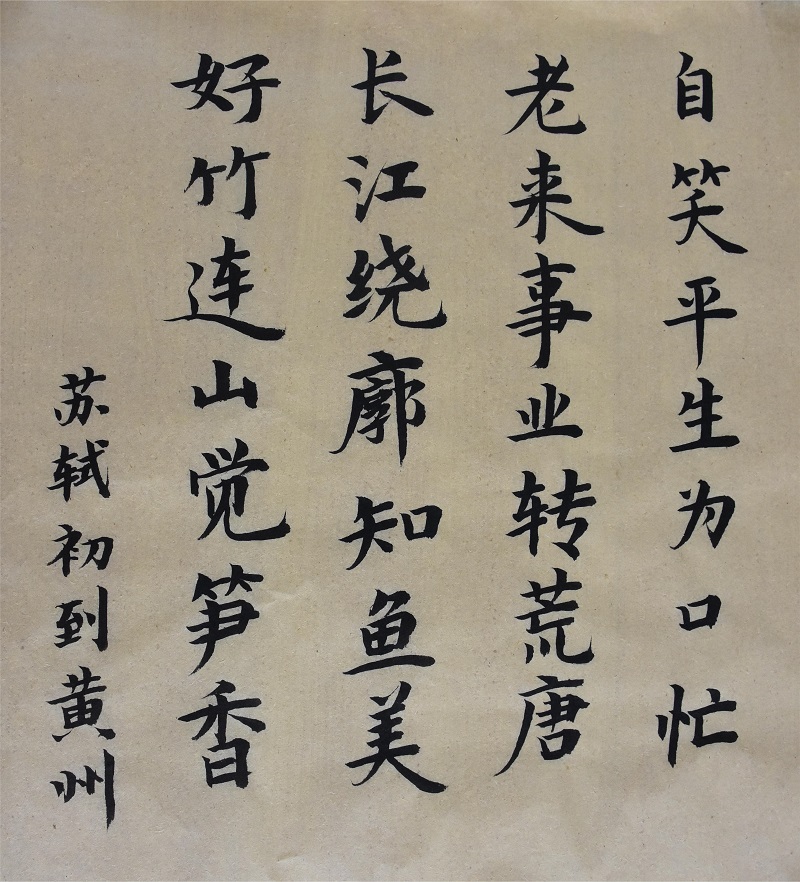 自笑平生为口忙
老来事业转荒唐
长江绕廓知鱼美
好竹连山觉笋香
苏轼初到黄州